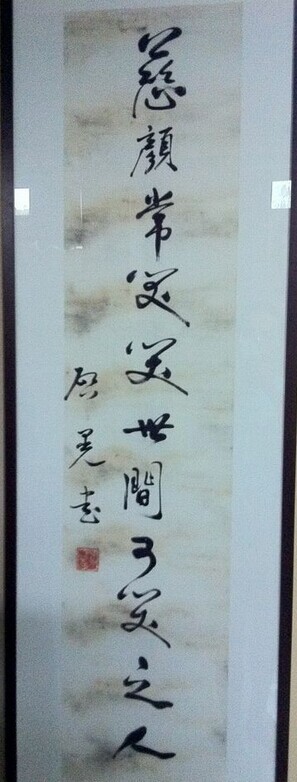 慈顏常笑笑世間可笑之人
啓晃書